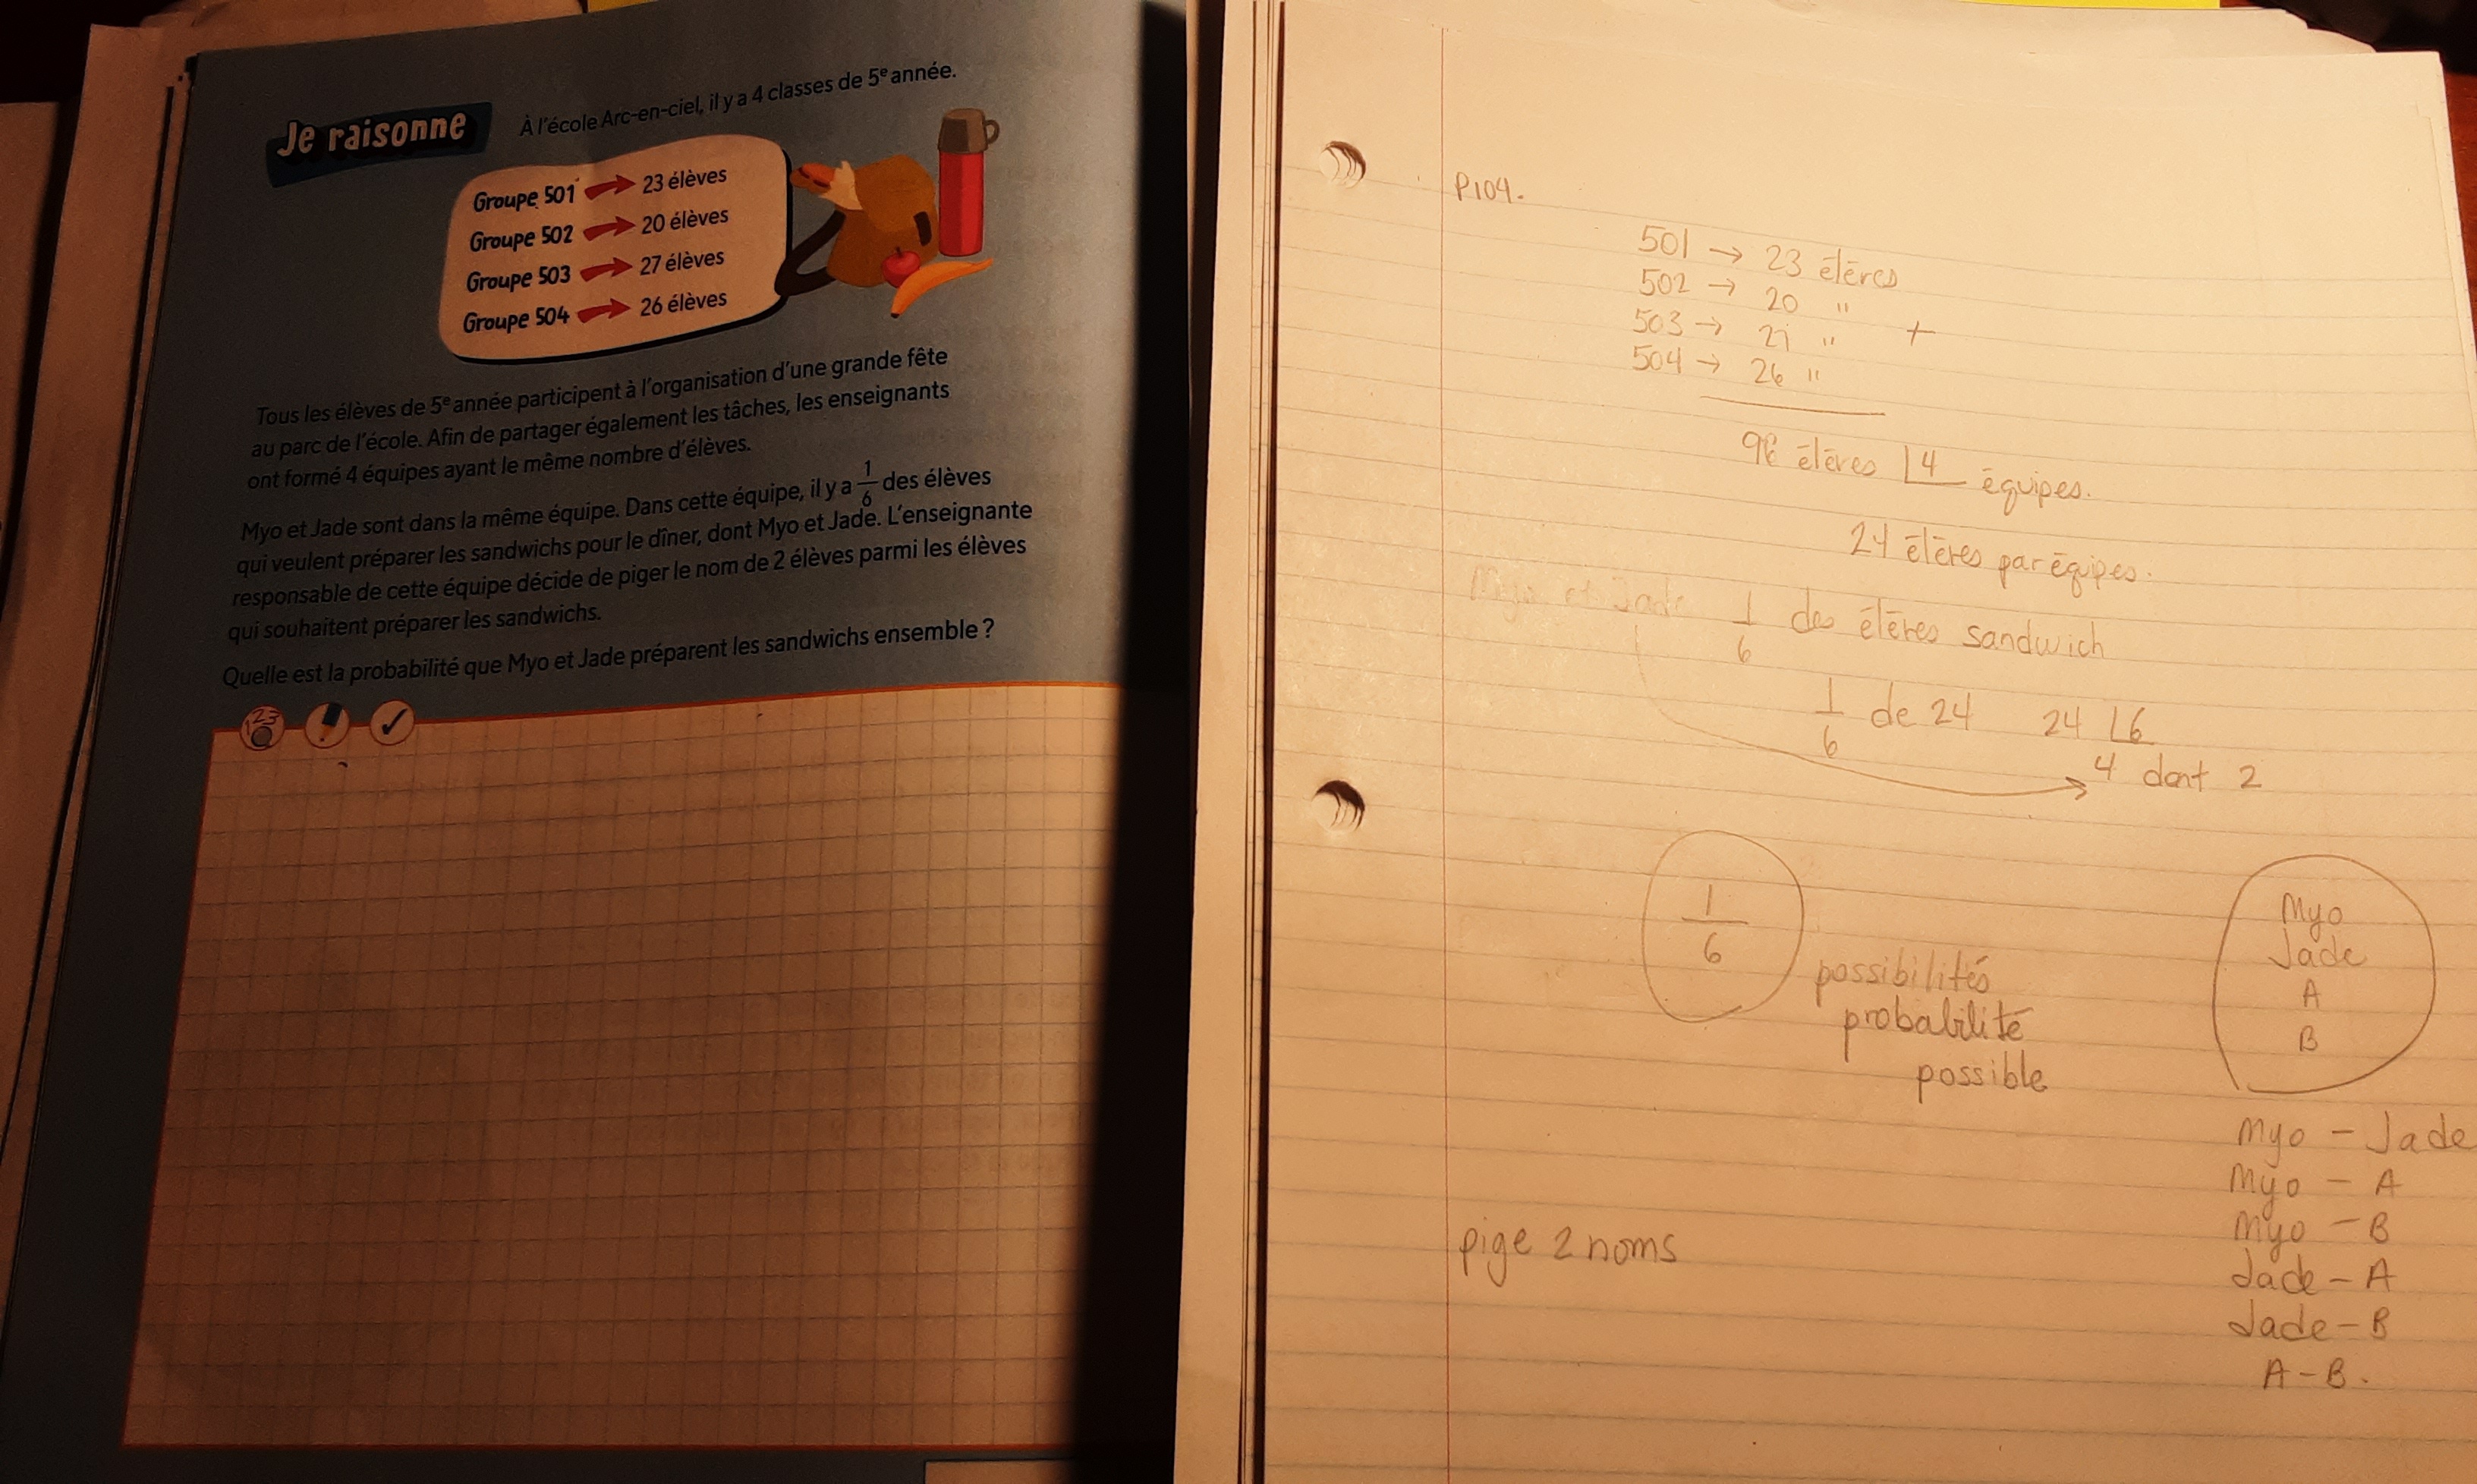 Je raisonne
À l'école Arc-en-ciel, il y a 4 classes de 5e année.
Groupe 501 → 23 élèves
Groupe 502 → 20 élèves
Groupe 503 → 27 élèves
Groupe 504 → 26 élèves
Tous les élèves de 5e année participent à l'organisation d'une grande fête
au parc de l'école. Afin de partager également les tâches, les enseignants
ont formé 4 équipes ayant le même nombre d'élèves.
Myo et Jade sont dans la même équipe. Dans cette équipe, il y a 1/6 des élèves
qui veulent préparer les sandwichs pour le dîner, dont Myo et Jade. L'enseignante
responsable de cette équipe décide de piger le nom de 2 élèves parmi les élèves
qui souhaitent préparer les sandwichs.
Quelle est la probabilité que Myo et Jade préparent les sandwichs ensemble ?
123
P104.
501 → 23 élèves
502 → 20 "
503 → 27 " +
504 → 26 "
96 élèves 4 équipes.
24 élèves par équipes.
Myo et Jade 1/6 des élèves sandwich
1/6 de 24 24 6
4 dont 2
1/6
possibilités
probabilité
possible
Myo
Jade
A
B
Myo - Jade
Myo - A
Myo - B
Jade - A
Jade - B
A - B.
pige 2 noms